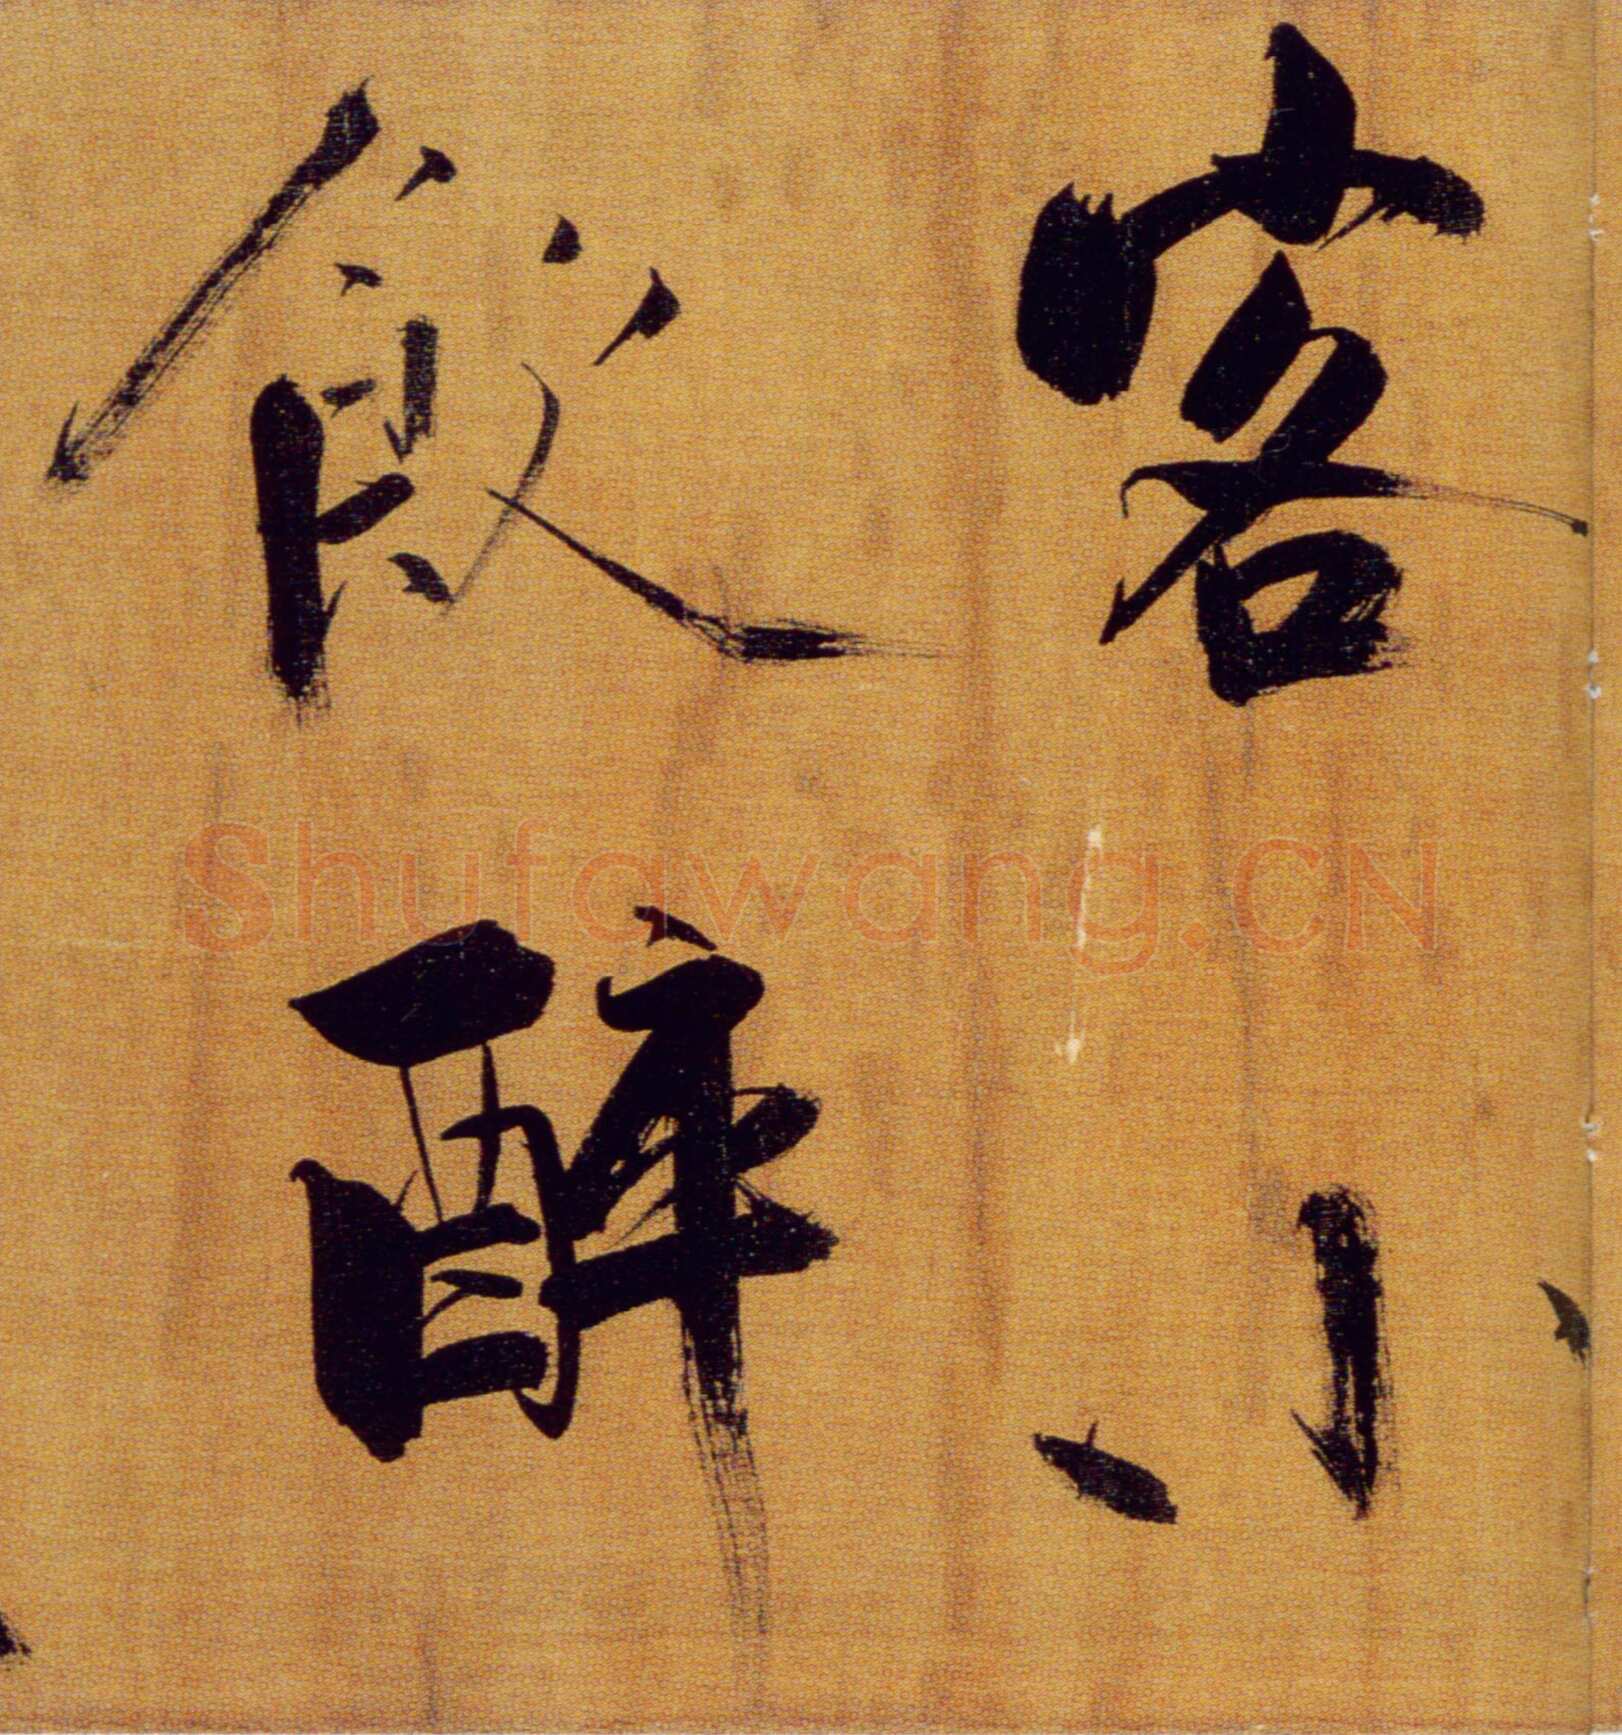 客小
飲醉
Shufawang.CN